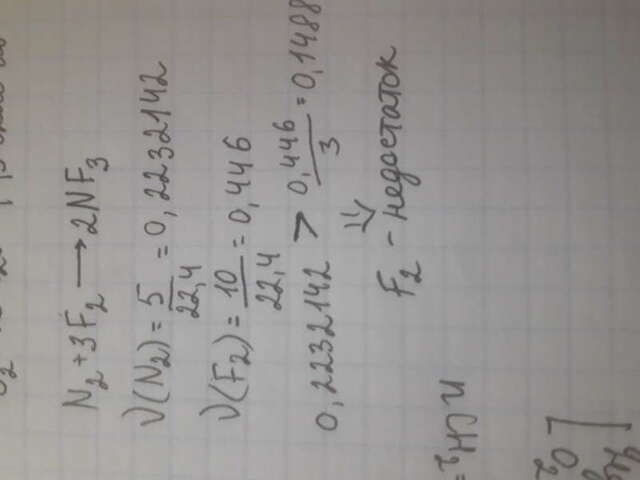 N₂ + 3F₂ → 2NF₃
ν(N₂) = 5/22,4 = 0,2232142
ν(F₂) = 10/22,4 = 0,446
0,2232142 > 0,446/3 = 0,1488
⇓
F₂ - недостаток